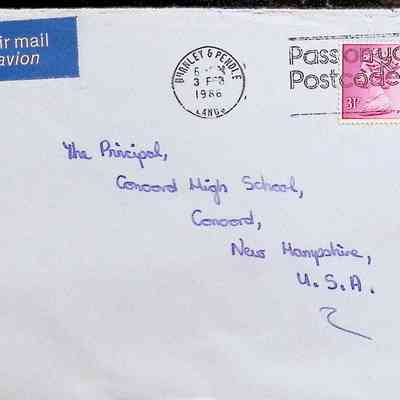 ir mail
avion
BURNLEY & PENDLE
3 FEB
1986
LANCS
Pass on yo
Postcode
The Principal,
Concord High School,
Concord,
New Hampshire,
U.S.A.